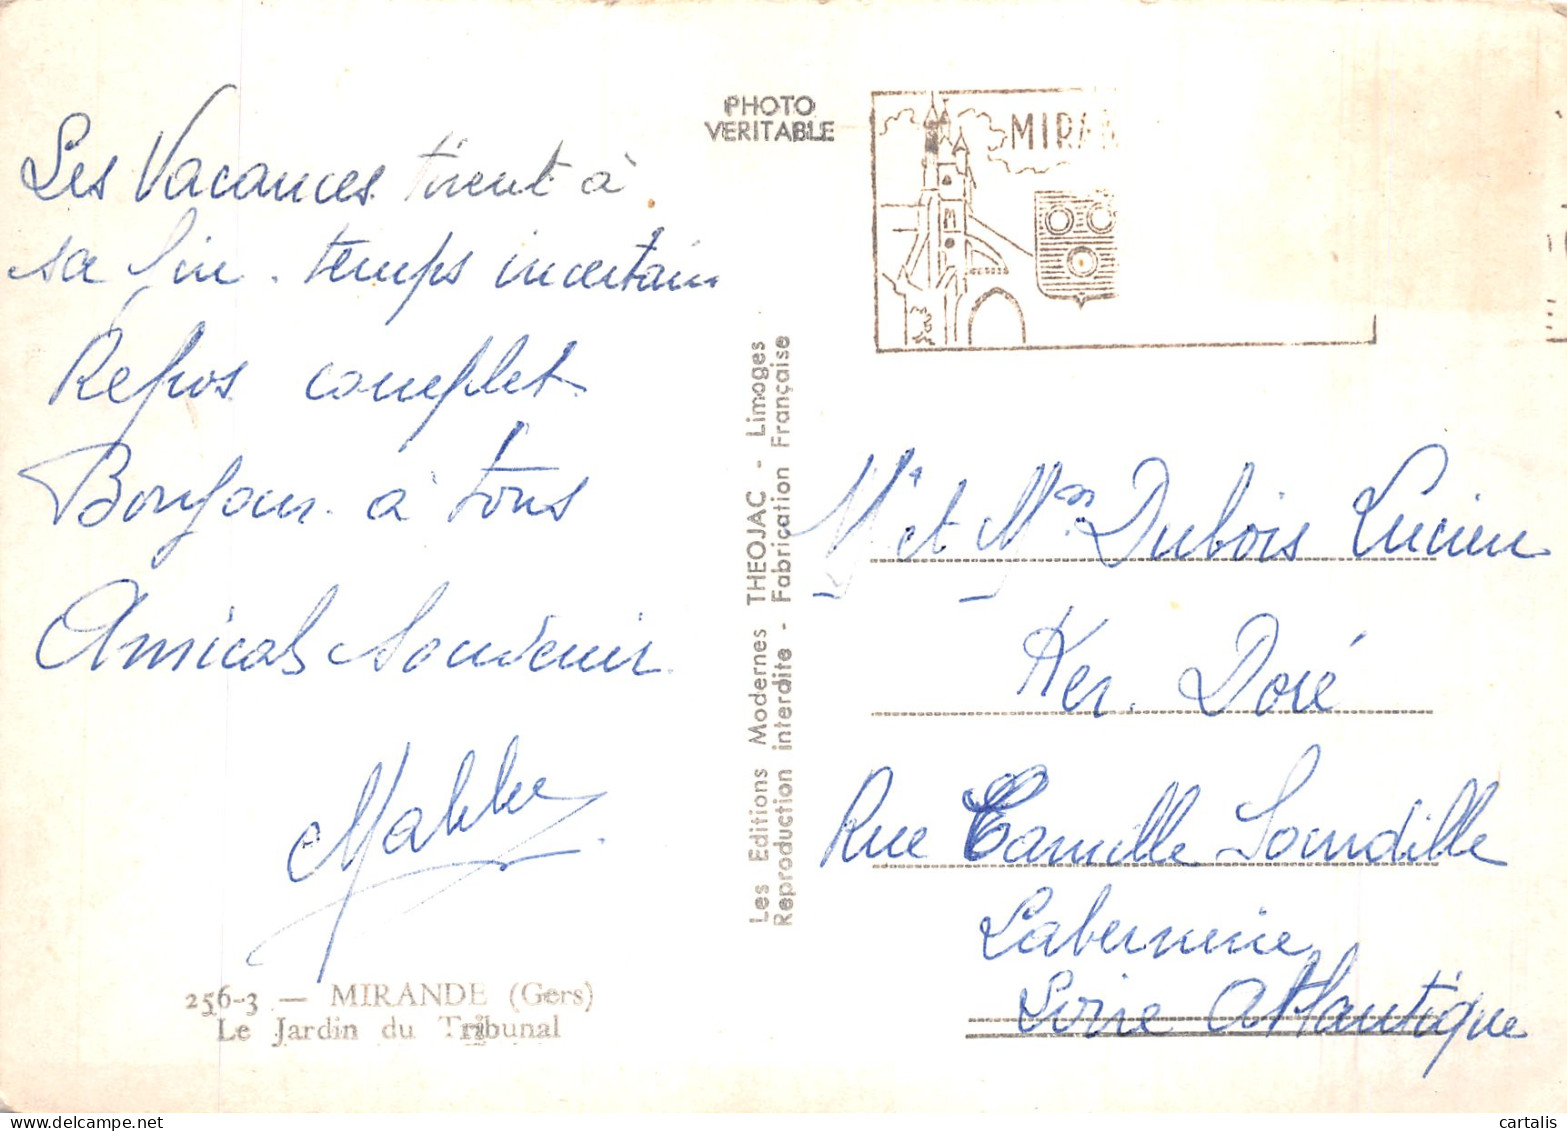 Les Vacances tirent à
sa fin. temps incertain
Repos complet
Bonjour à tous
Amical Souvenir
256-3 — MIRANDE (Gers)
Le Jardin du Tribunal
PHOTO
VERITABLE
Les Editions Modernes THEOJAC - Limoges
Reproduction interdite - Fabrication Française
MIRAN
Mr et Mm Dubois Lucien
Ker. Doré
Rue Camille
Labernerie
Loire Atlantique
cartalis